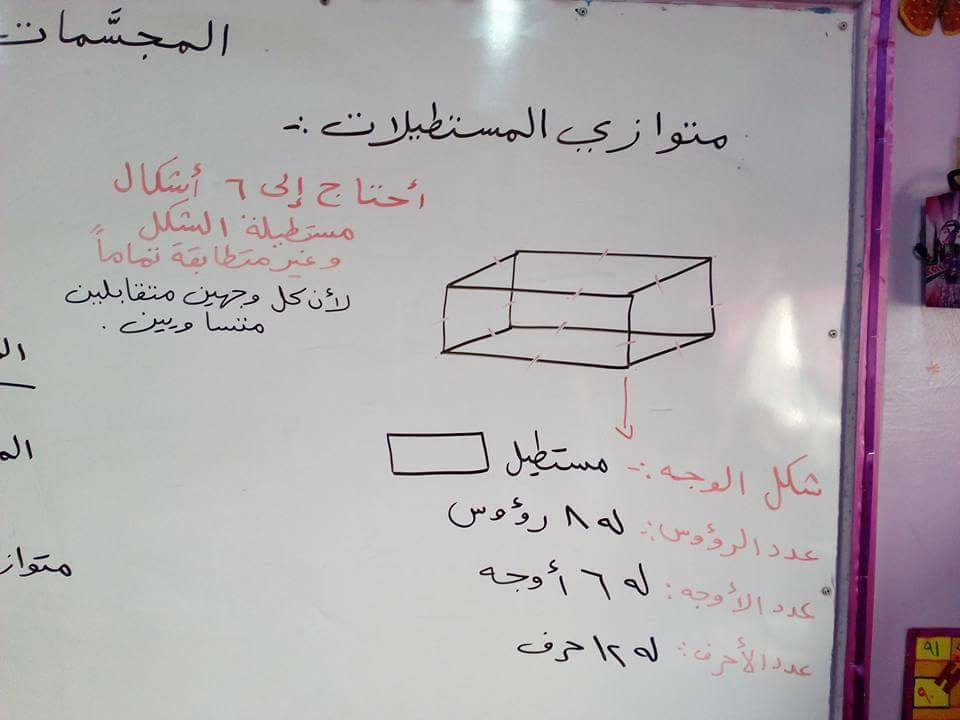 المجسَّمات
متوازي المستطيلات :-
أحتاج إلى ٦ أشكال
مستطيلة الشكل
وغير متطابقة تماماً
لأن كل وجهين متقابلين
متساويين .
شكل الوجه :- مستطيل
عدد الرؤوس :- له ٨ رؤوس
عدد الأوجه : له ٦ أوجه
عدد الأحرف : له ١٢ حرف
٩١
٩٠